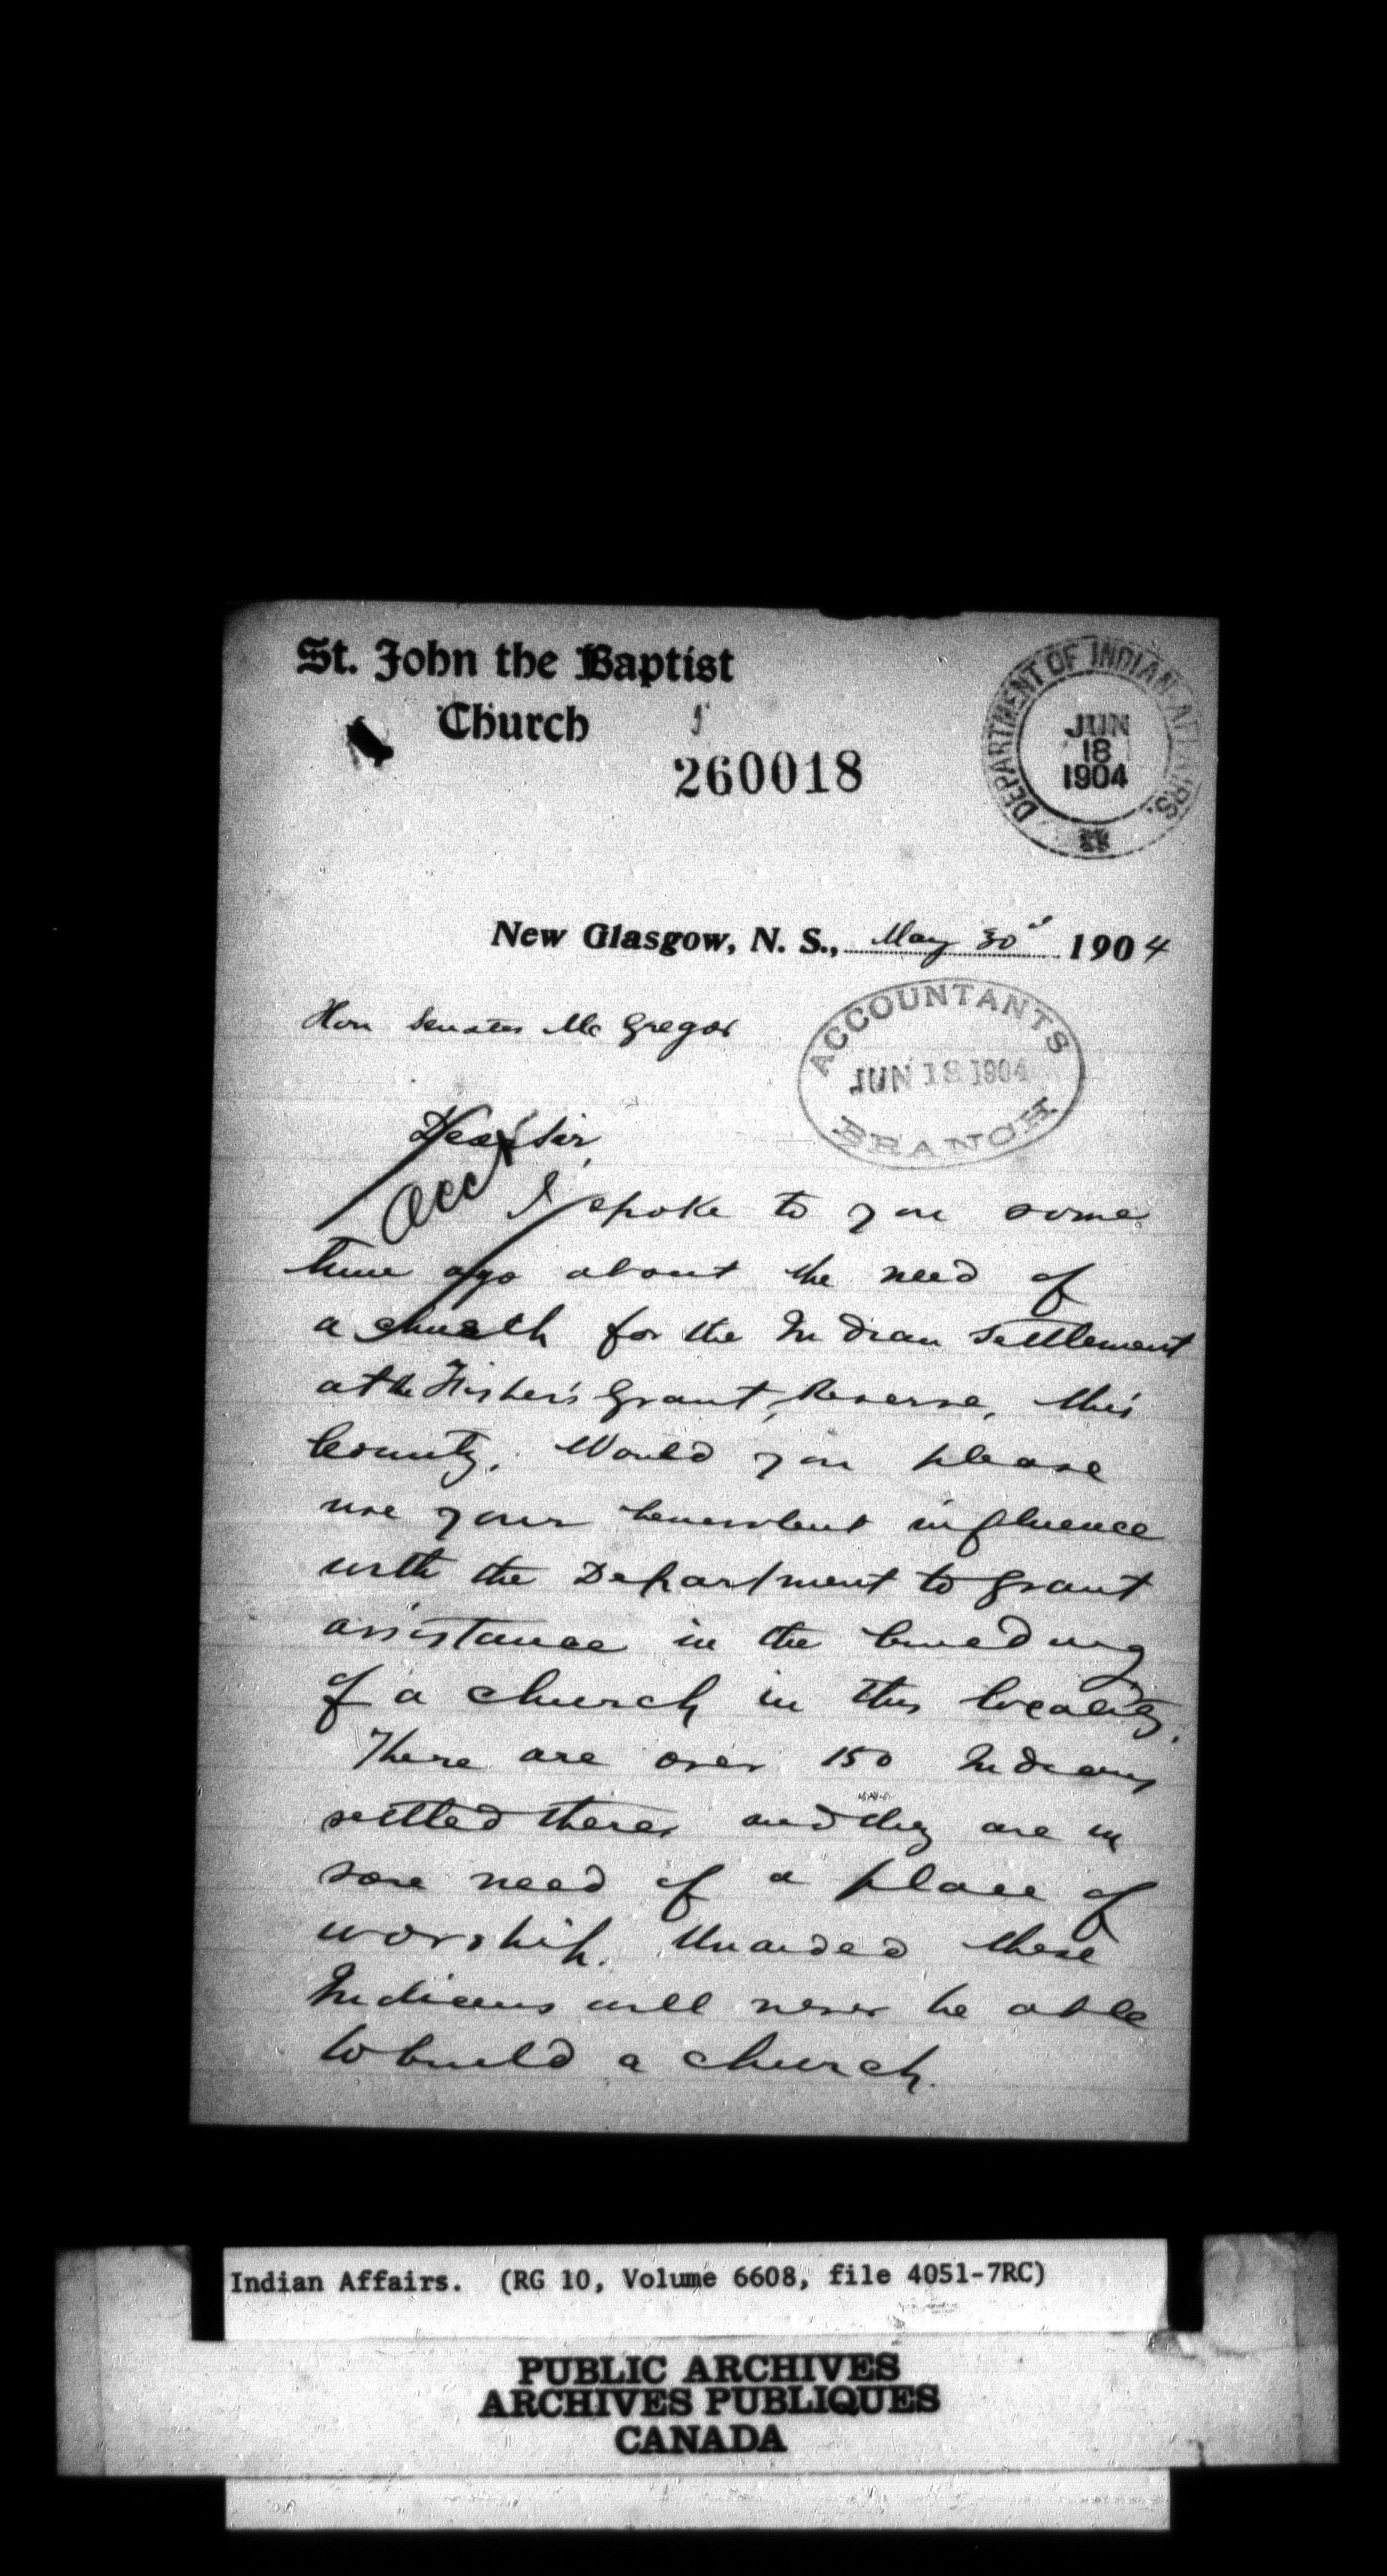 St. John the Baptist
Church
260018
DEPARTMENT OF INDIAN AFFAIRS.
JUN
18
1904
New Glasgow, N. S., May 30 1904
Hon Senator McGregor
ACCOUNTANTS
JUN 18 1904
BRANCH
Dear Sir,
Acct
I spoke to you some
time ago about the need of
a church for the Indian Settlement
at the Fisher's Grant, Reserve, this
County. Would you please
use your benevolent influence
with the Department to grant
assistance in the building
of a church in this locality.
There are over 150 Indians
settled there and they are in
sore need of a place of
worship. Unaided these
Indians will never be able
to build a church.
Indian Affairs. (RG 10, Volume 6608, file 4051-7RC)
PUBLIC ARCHIVES
ARCHIVES PUBLIQUES
CANADA